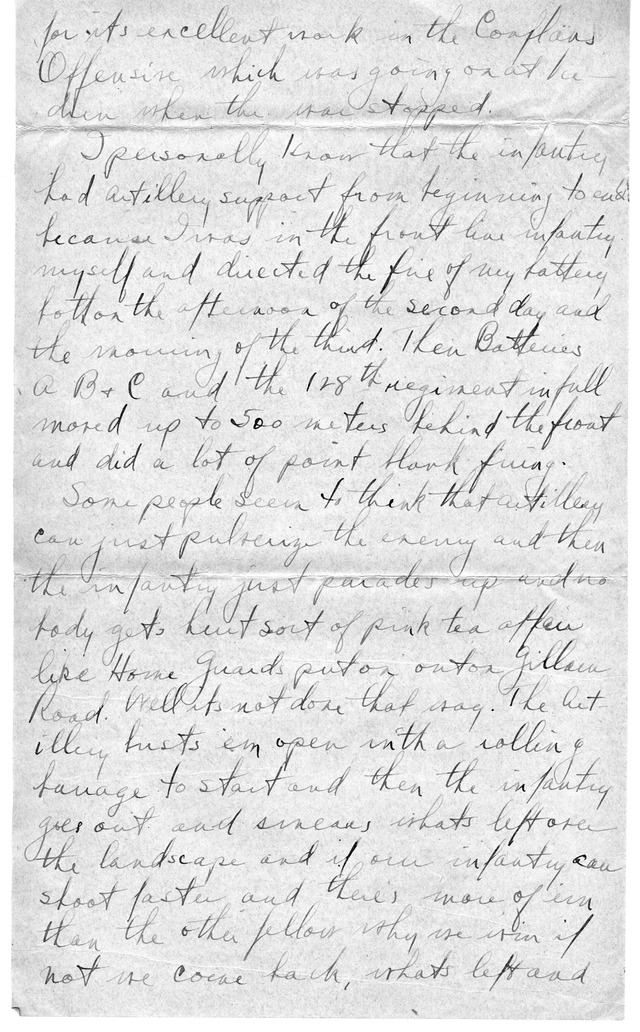 for its excellent work in the Conflans
Offensive which was going on at Ver-
dun when the war stopped.
I personally know that the infantry
had artillery support from beginning to end
because I was in the front line infantry
myself and directed the fire of my battery
both on the afternoon of the second day and
the morning of the third. Then Batteries
A B + C and the 128th regiment in full
moved up to 500 meters behind the front
and did a lot of point blank firing.
Some people seem to think that artillery
can just pulverize the enemy and then
the infantry just parades up and no
body gets hurt sort of pink tea affair
like Home Guards put on out on Gillham
Road. Well its not done that way. The Art-
illery busts 'em open with a rolling
barrage to start and then the infantry
goes out and smears whats left over
the landscape and if our infantry can
shoot faster and there's more of 'em
than the other fellow why we win if
not we come back, whats left and